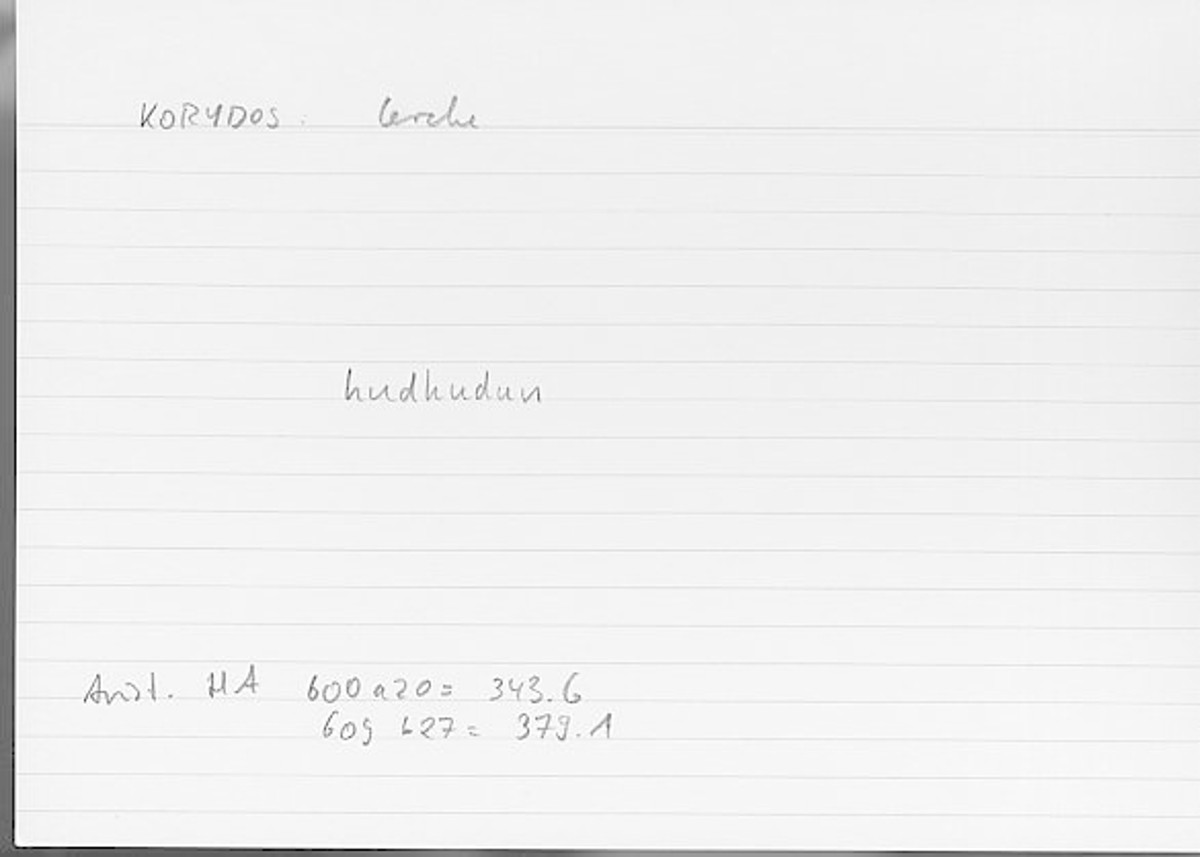 KORYDOS: Lerche
hudhudun
Arist. HA 600a20 = 343.6
609 b27 = 379.1